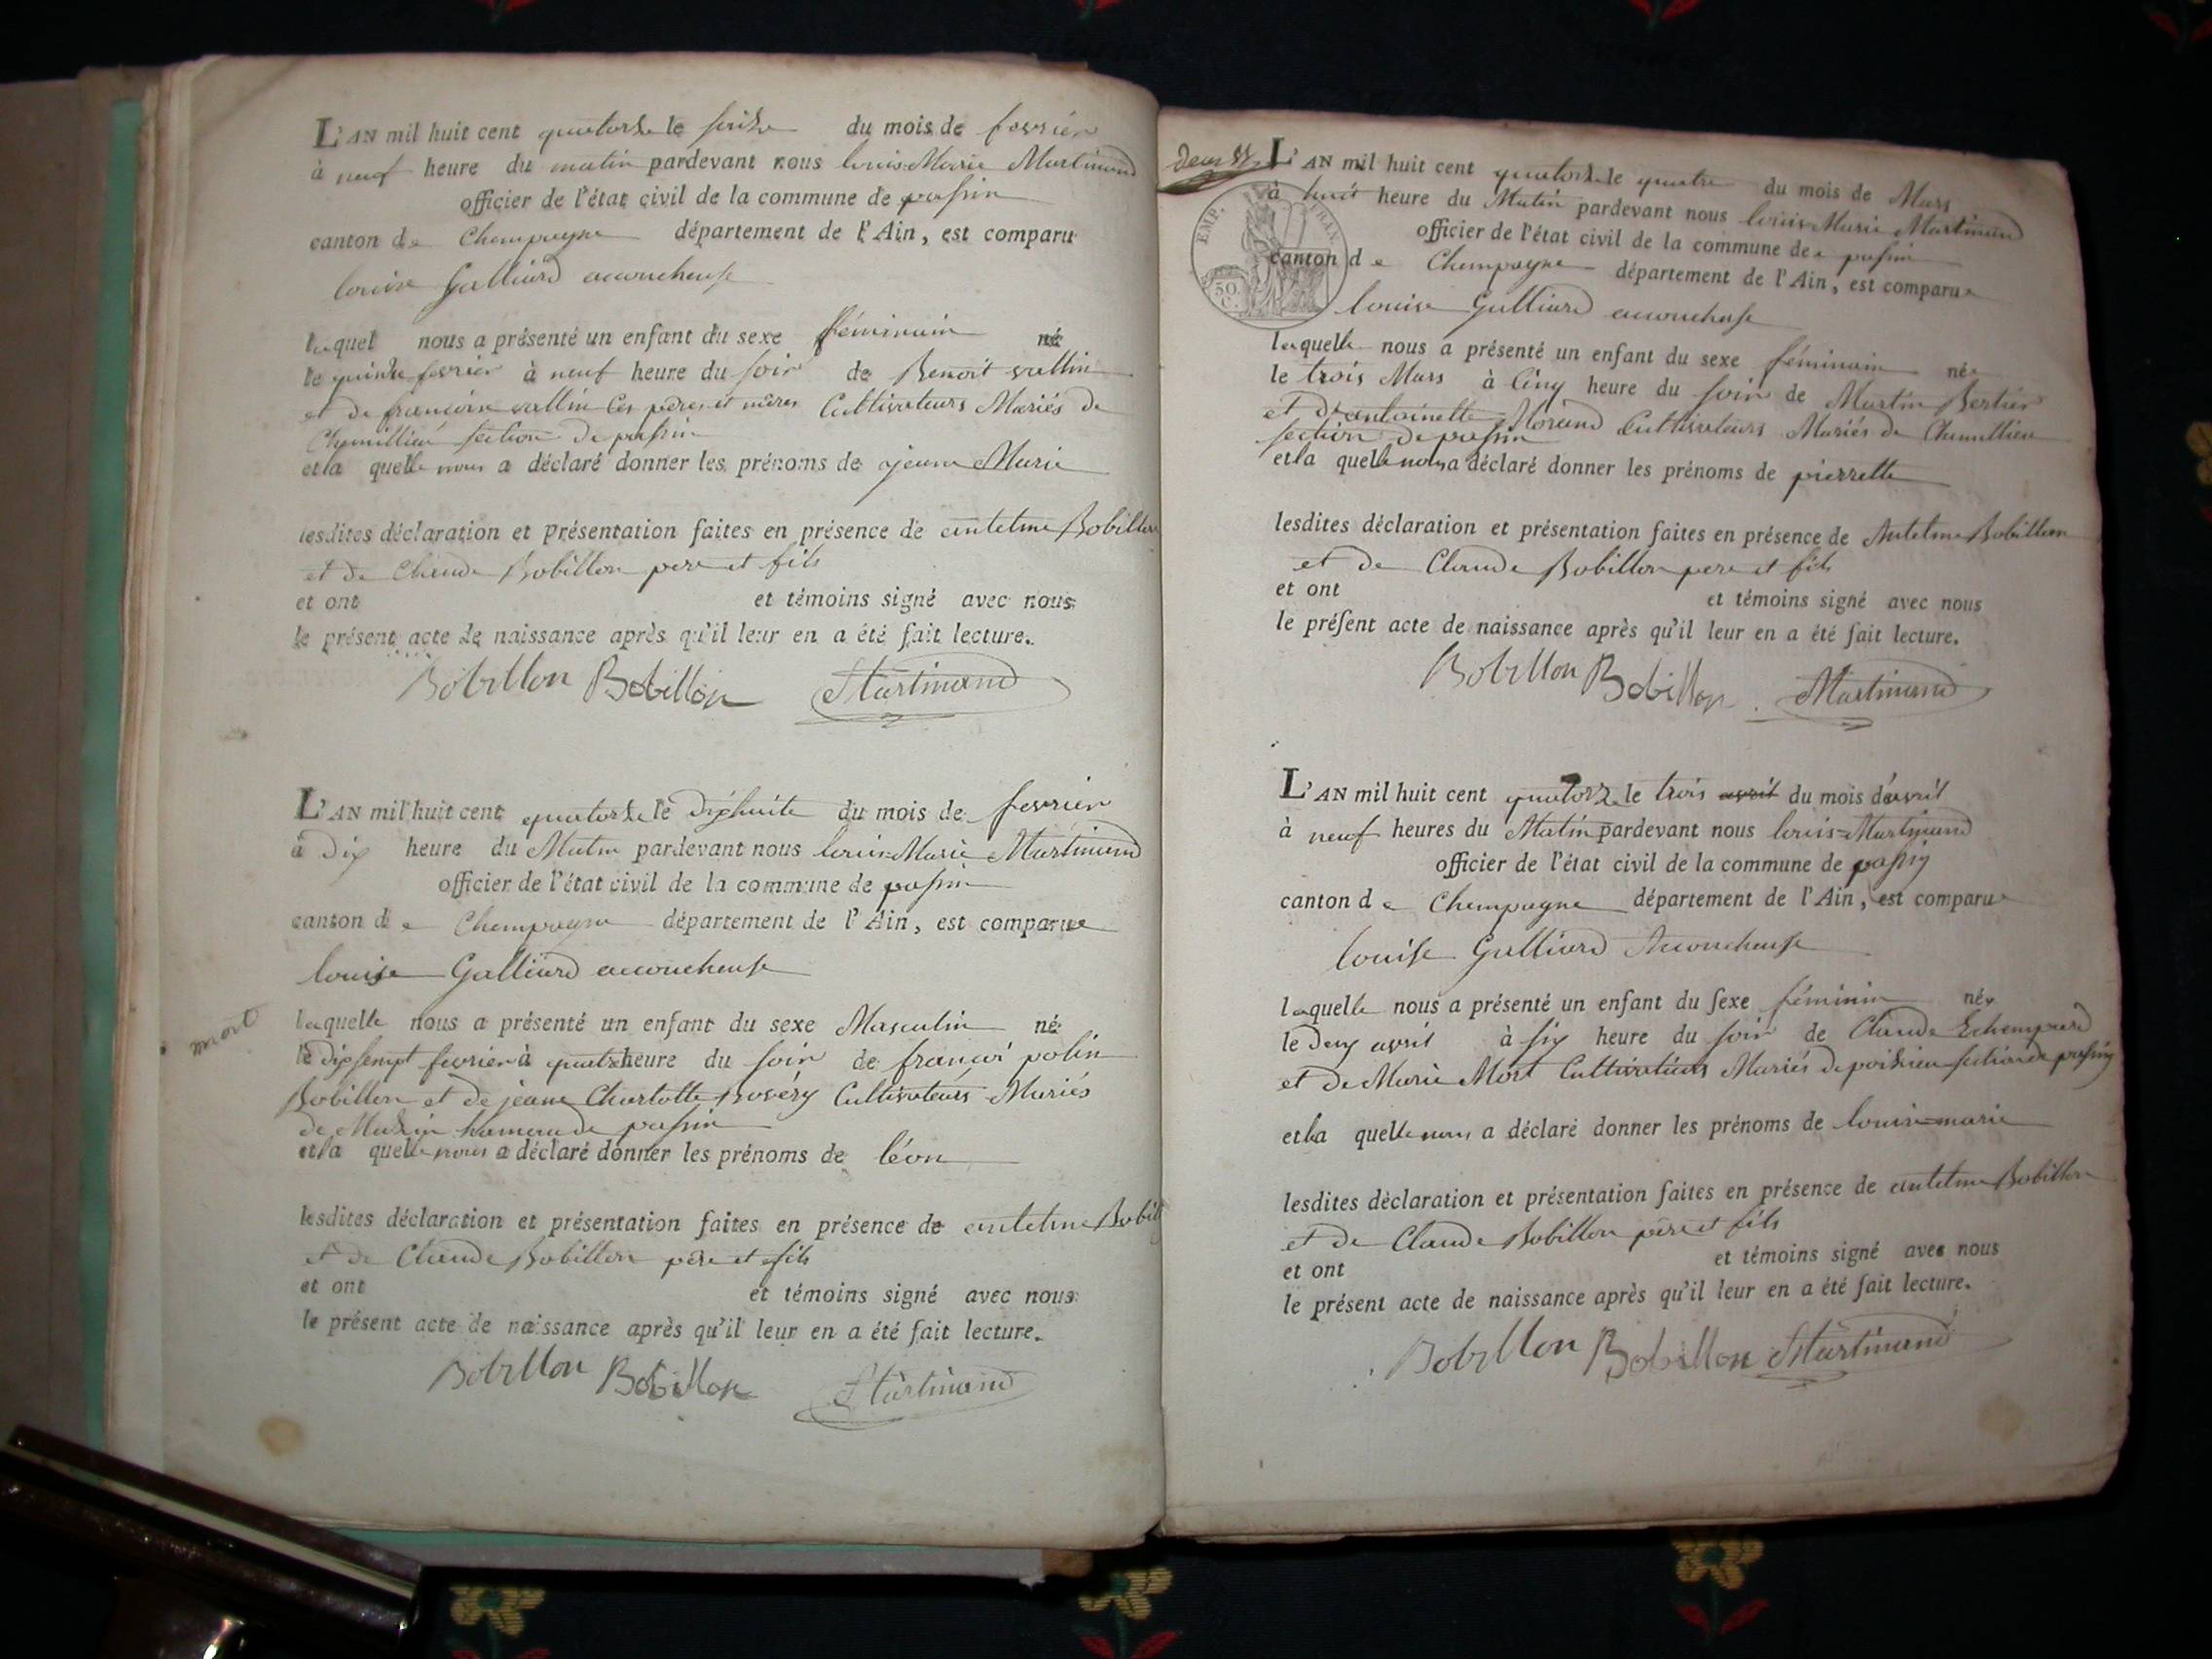 L'AN mil huit cent quatorze le seize du mois de fevrier
à neuf heure du matin pardevant nous louis Marie Martinand
officier de l'état civil de la commune de passin
canton de Champagne département de l'Ain, est comparu
louise Galliard accoucheuse
laquel nous a présenté un enfant du sexe féminin né
le quinze fevrier à neuf heure du soir de Benoit vallin
et de francoise vallin Ces pères et mères Cultivateurs Mariés de
Chemillieu section de passin
et la quelle nous a déclaré donner les prénoms de jeane Marie
lesdites déclaration et présentation faites en présence de antelme Bobillon
et de Claude Bobillon pere et fils
et ont et témoins signé avec nous
le présent acte de naissance après qu'il leur en a été fait lecture.
Bobillon Bobillon Martinand
L'AN mil huit cent quatorze le dixhuite du mois de fevrier
à dix heure du Matin pardevant nous louis Marie Martinand
officier de l'état civil de la commune de passin
canton de Champagne département de l'Ain, est comparue
louise Galliard accoucheuse
mort
laquelle nous a présenté un enfant du sexe Masculin né
le dixsempt fevrier à quatre heure du soir de francoi polin
Bobillon et de jeane Charlotte Bovéry Cultivateurs Mariés
de hameau de passin
et la quelle nous a déclaré donner les prénoms de léon
lesdites déclaration et présentation faites en présence de antelme Bobill
et de Claude Bobillon père et fils
et ont et témoins signé avec nous
le présent acte de naissance après qu'il leur en a été fait lecture.
Bobillon Bobillon Martinand
deux
EMP. FRAN.
50. C.
L'AN mil huit cent quatorze le quatre du mois de Mars
à huit heure du Matin pardevant nous louis Marie Martinand
officier de l'état civil de la commune de passin
canton de Champagne département de l'Ain, est comparue
louise Galliard accoucheuse
laquelle nous a présenté un enfant du sexe féminin née
le trois Mars à Cinq heure du soir de Martin Bertier
et d'antoinette Morand Cultivateurs Mariés de Chemillieu
section de passin
et la quelle nous a déclaré donner les prénoms de pierrette
lesdites déclaration et présentation faites en présence de Antelme Bobillon
et de Claude Bobillon pere et fils
et ont et témoins signé avec nous
le présent acte de naissance après qu'il leur en a été fait lecture.
Bobillon Bobillon Martinand
L'AN mil huit cent quatorze le trois avril du mois d'avril
à neuf heures du Matin pardevant nous louis Martinand
officier de l'état civil de la commune de passin
canton de Champagne département de l'Ain, est comparue
louise Galliard Accoucheuse
laquelle nous a présenté un enfant du sexe féminin née
le deux avril à six heure du soir de Claude Echempard
et de Marie Mort Cultivateurs Mariés de poisieu section de passin
et la quelle nous a déclaré donner les prénoms de louise marie
lesdites déclaration et présentation faites en présence de antelme Bobillon
et de Claude Bobillon père et fils
et ont et témoins signé avec nous
le présent acte de naissance après qu'il leur en a été fait lecture.
Bobillon Bobillon Martinand